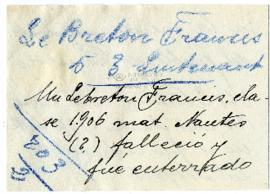 Le Breton Francis
5 3 Lieutenant
Un Lebreton Francis, cla-
se 1906 mat. Nantes
(2) falleció y
fue enterrado
203
2